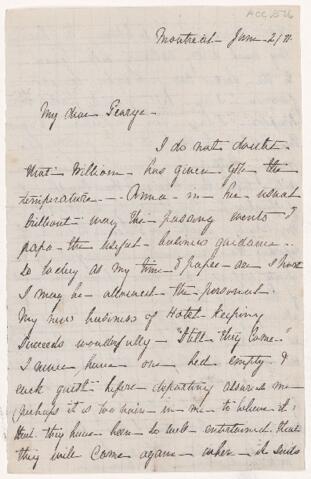 ACC. 576
Montreal - June 2/
My dear George -
I do not doubt
that William - has given you the
temperature - - Anna - in her usual
brilliant way the passing events &
papa - the useful - business guidance -
so today as my time & paper - are short
I may be allowed - the personal.
My new business of Hotel Keeping
succeeds wonderfully - "Still they Come."
I never have one bed empty. &
each guest - before - departing assures me -
(perhaps it is too vain - in me - to believe it)
that they have been - so well - entertained, that
they will come again - when - it suits